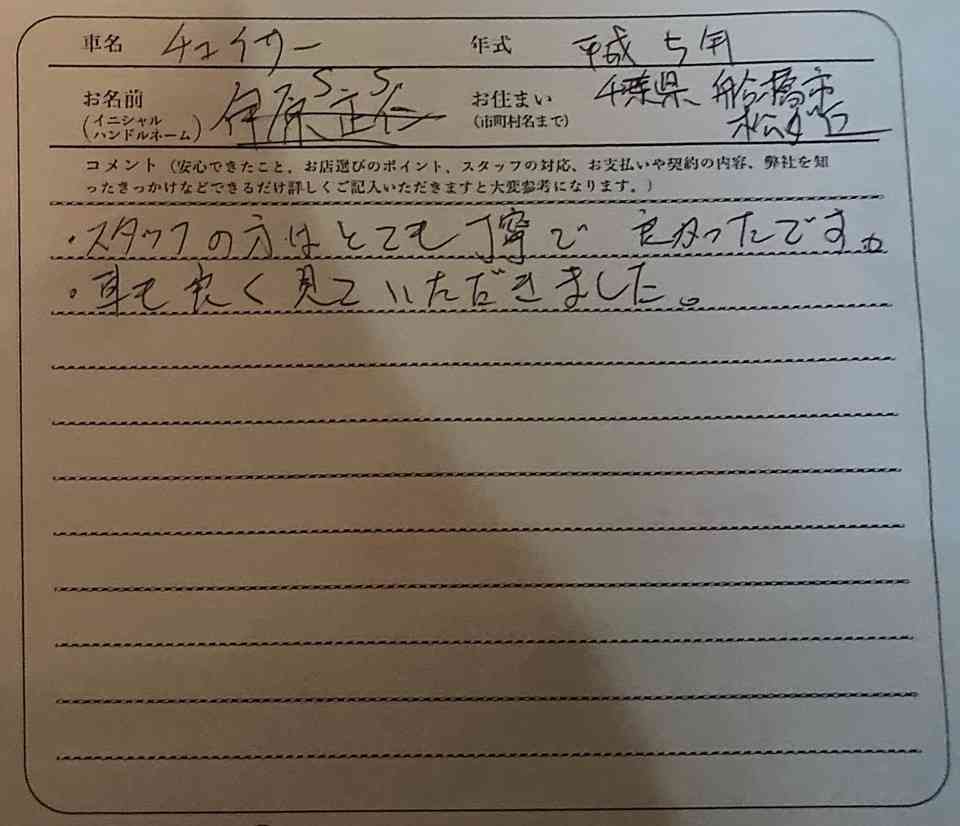 車名 チェイサー 年式 平成5年
S S
お名前 伊原 正仁 お住まい 千葉県 船橋市
(イニシャル ハンドルネーム) (市町村名まで)
コメント(安心できたこと、お店選びのポイント、スタッフの対応、お支払いや契約の内容、弊社を知
ったきっかけなどできるだけ詳しくご記入いただきますと大変参考になります。)
・スタッフの方はとても丁寧で 良かったです。
・車も良く見ていただきました。